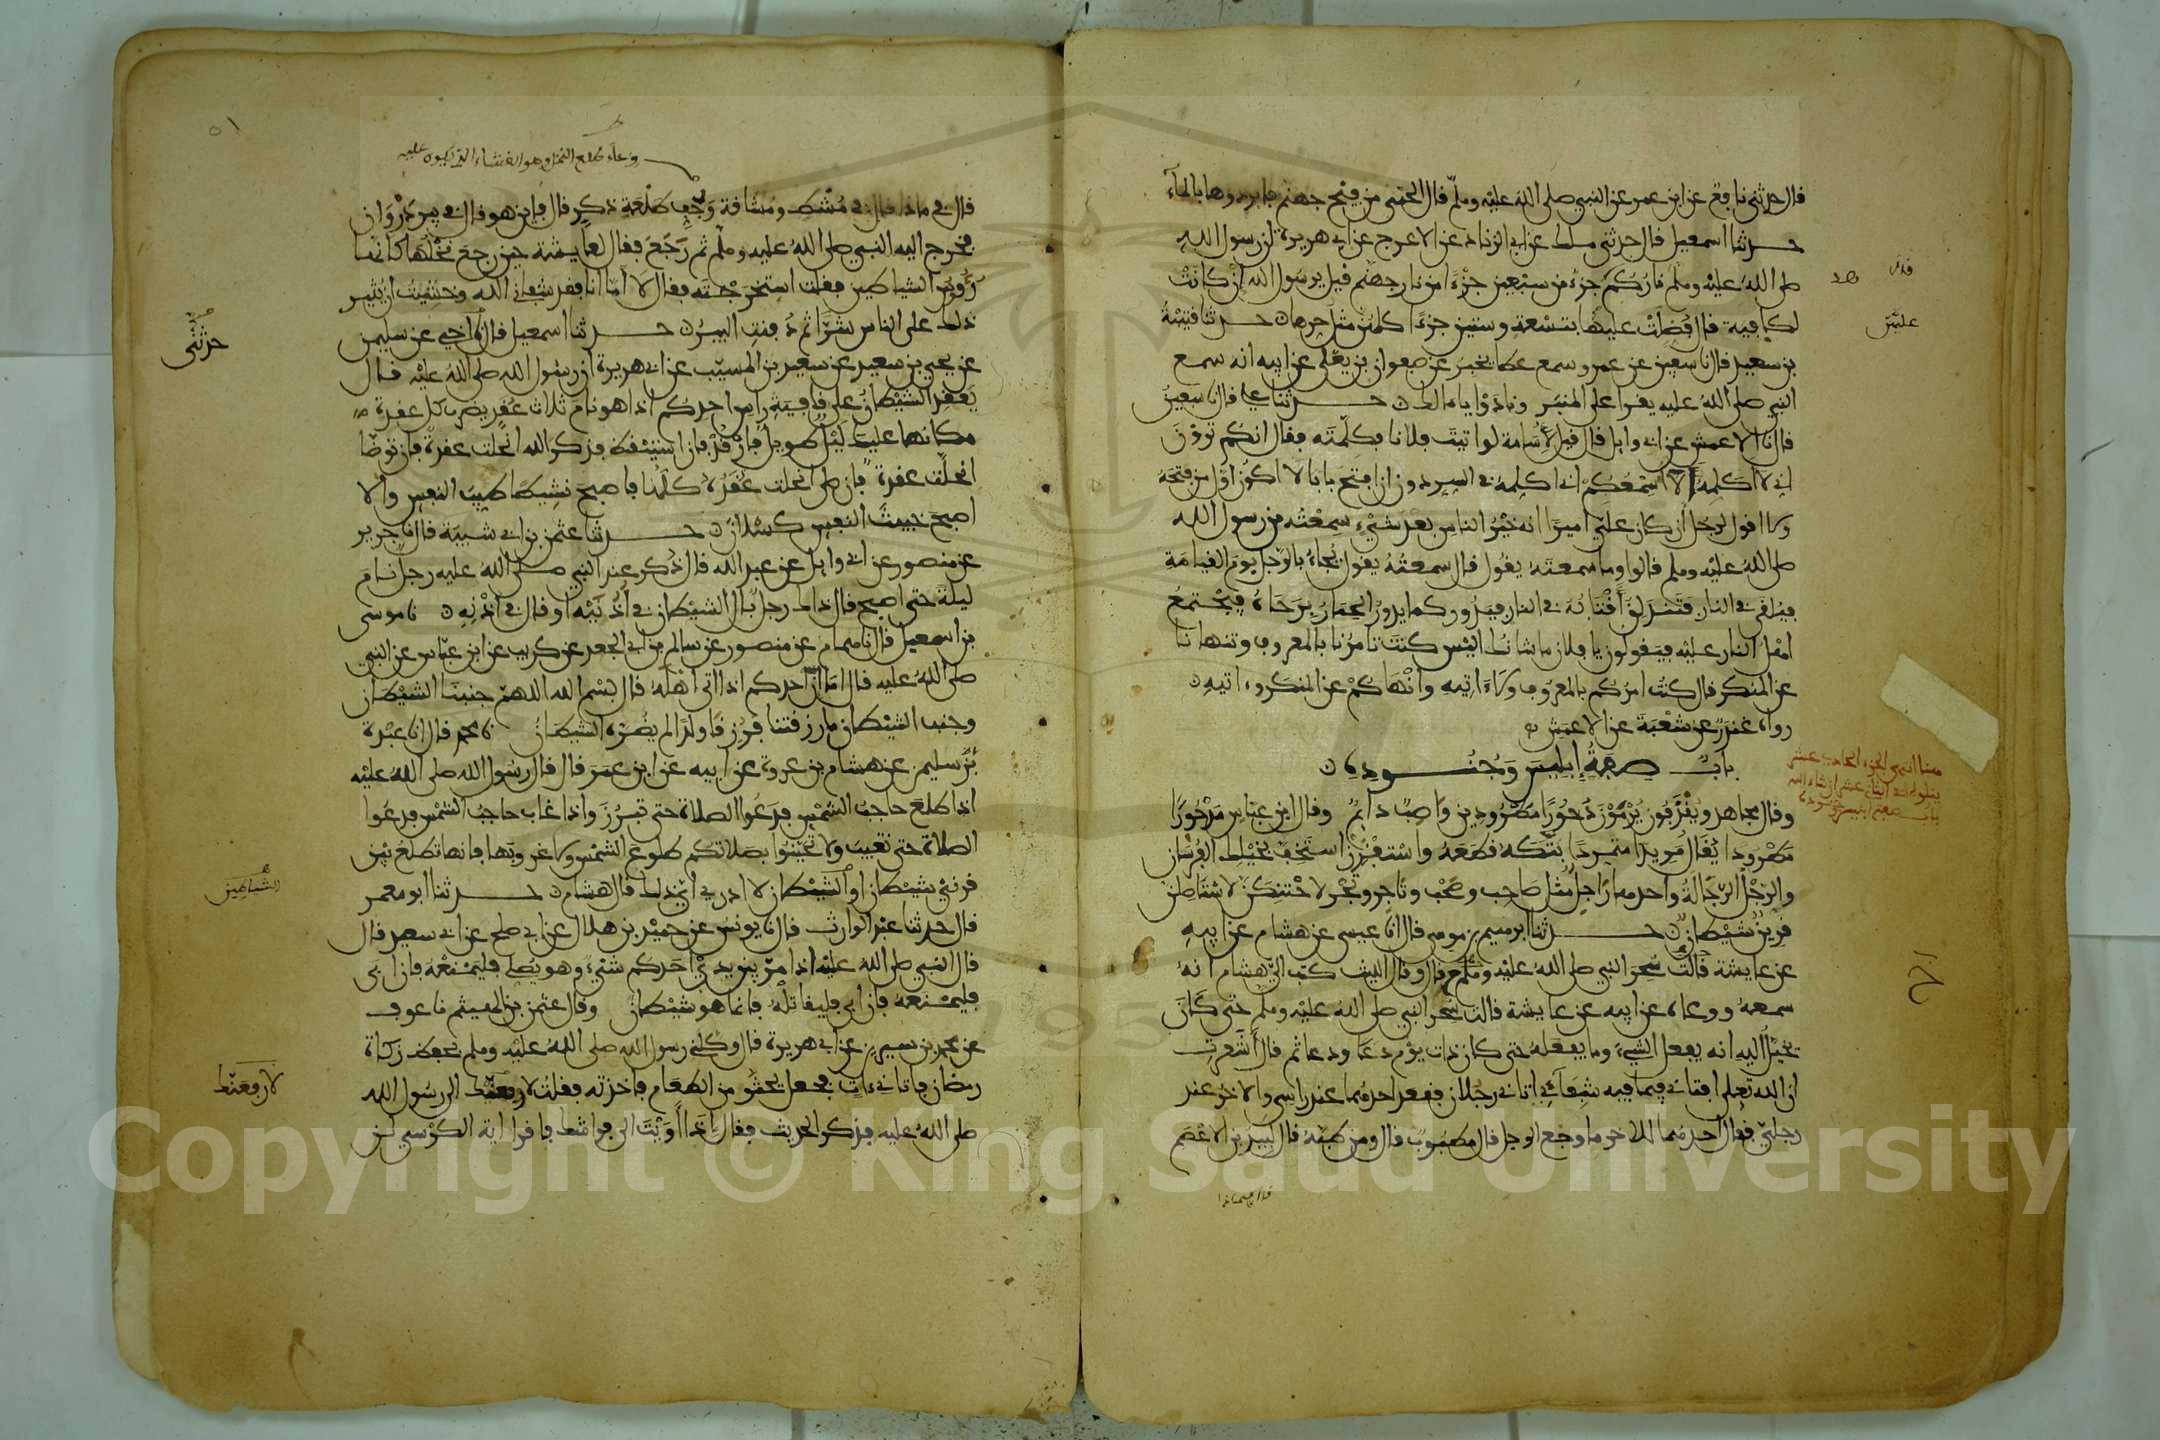 قال حدثني نافع عن ابن عمر عن النبي صلى الله عليه وسلم قال الحمى من فيح جهنم فابردوها بالماء
حدثنا اسمعيل قال حدثني ملك عن ابي الزناد عن الاعرج عن ابي هريرة ان رسول الله
صلى الله عليه وسلم قال ناركم جزء من سبعين جزءا من نار جهنم قيل يرسول الله ان كانت
لكافية قال فضلت عليها بتسعة وستين جزءا كلهن مثل حرها حدثنا قتيبة
بن سعيد قال نا سفين عن عمرو سمع عطا يخبر عن صفوان بن يعلى عن ابيه انه سمع
النبي صلى الله عليه يقرا على المنبر ونادوا يا ملك حدثنا علي قال نا سفين
قال نا الاعمش عن ابي وايل قال قيل لأسامة لو اتيت فلانا فكلمته فقال انكم ترون
اني لا اكلمه الا اسمعكم اني اكلمه في السر دون ان افتح بابا لا اكون اول من فتحه
ولا اقول لرجل ان كان علي اميرا انه خير الناس بعد شيء سمعته من رسول الله
صلى الله عليه وسلم قالوا وما سمعته يقول قال سمعته يقول يجاء بالرجل يوم القيامة
فيلقى في النار فتندلق أقتابه في النار فيدور كما يدور الحمار برحاه فيجتمع
اهل النار عليه فيقولون يا فلان ما شانك اليس كنت تامرنا بالمعروف وتنهانا
عن المنكر قال كنت امركم بالمعروف ولا ءاتيه وانهاكم عن المنكر وءاتيه
رواه غندر عن شعبة عن الاعمش
باب صفة إبليس وجنوده
وقال مجاهد ويقذفون يرمون دحورا مطرودين واصب دايم وقال ابن عباس مدحورا
مطرودا يقال مريدا متمردا بتكه قطعه واستفزز استخف بخيلك الفرسان
والرجل الرجالة واحدها راجل مثل صاحب وصحب وتاجر وتجر لاحتنكن لاستاصلن
قرين شيطان حدثنا ابرهيم بن موسى قال انا عيسى عن هشام عن ابيه
عن عايشة قالت سحر النبي صلى الله عليه وسلم ح قال وقال الليث كتب الي هشام انه
سمعه ووعاه عن ابيه عن عايشة قالت سحر النبي صلى الله عليه وسلم حتى كان
يخيل اليه انه يفعل الشيء وما يفعله حتى كان ذات يوم دعا ودعا ثم قال أشعرت
ان الله تعلى افتاني فيما فيه شفائي اتاني رجلان فقعد احدهما عند راسي والاخر عند
رجلي فقال احدهما للاخر ما وجع الرجل قال مطبوب قال ومن طبه قال لبيد بن الاعصم
هنا انتهى الجزء الحادي عشر
يتلوه في الثاني عشر ان شاء الله
باب صفة ابليس وجنوده
٥١
وعاء طلع النخل وهو الغشاء الذي يكون عليه
قال في ماذا قال في مشط ومشاقة وجف طلعة ذكر قال فاين هو قال في بير ذروان
فخرج اليه النبي صلى الله عليه وسلم ثم رجع فقال لعايشة حين رجع نخلها كانها
رءوس الشياطين فقلت استخرجته فقال لا أما انا فقد شفاني الله وخشيت ان يثير
ذلك على الناس شرا ثم دفنت البير حدثنا اسمعيل قال نا اخي عن سليمن
عن يحيى بن سعيد عن سعيد بن المسيب عن ابي هريرة ان رسول الله صلى الله عليه قال
يعقد الشيطان على قافية راس احدكم اذا هو نام ثلاث عقد يضرب كل عقدة
مكانها عليك ليل طويل فارقد فان استيقظ فذكر الله انحلت عقدة فان توضا
انحلت عقدة فان صلى انحلت عقده كلها فاصبح نشيطا طيب النفس والا
اصبح خبيث النفس كسلان حدثنا عثمن بن ابي شيبة قال نا جرير
عن منصور عن ابي وايل عن عبد الله قال ذكر عند النبي صلى الله عليه رجل نام
ليلة حتى اصبح قال ذاك رجل بال الشيطان في أذنيه او قال في اذنه نا موسى
بن اسمعيل قال نا همام عن منصور عن سالم بن ابي الجعد عن كريب عن ابن عباس عن النبي
صلى الله عليه قال اما ان احدكم اذا اتى أهله قال بسم الله اللهم جنبنا الشيطان
وجنب الشيطان ما رزقتنا فرزقا ولدا لم يضره الشيطان نا محمد قال انا عبدة
بن سليمن عن هشام بن عروة عن ابيه عن ابن عمر قال قال رسول الله صلى الله عليه
اذا طلع حاجب الشمس فدعوا الصلاة حتى تبرز واذا غاب حاجب الشمس فدعوا
الصلاة حتى تغيب ولا تحينوا بصلاتكم طلوع الشمس ولا غروبها فانها تطلع بين
قرني شيطان او الشيطان لا ادري اي ذلك قال هشام حدثنا ابو معمر
قال حدثنا عبد الوارث قال نا يونس عن حميد بن هلال عن ابي صلح عن ابي سعيد قال
قال النبي صلى الله عليه اذا مر بين يدي احدكم شيء وهو يصلي فليمنعه فان ابى
فليمنعه فان ابى فليقاتله فانما هو شيطان وقال عثمن بن الهيثم نا عوف
عن محمد بن سيرين عن ابي هريرة قال وكلني رسول الله صلى الله عليه وسلم بحفظ زكاة
رمضان فاتاني ءات فجعل يحثو من الطعام فاخذته فقلت لارفعنك الى رسول الله
صلى الله عليه فذكر الحديث فقال إذا أويت الى فراشك فاقرا اية الكرسي لن
حدثني
الشياطين
لارفعنك
Copyright © King Saud University